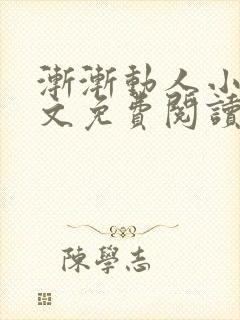 漸漸動人小
文免費閱讀
陳學志